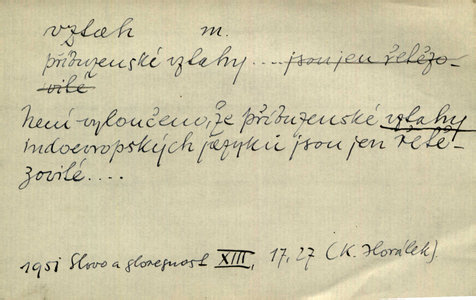 vztah m.
příbuzenské vztahy.... jsou jen řetězo-
vité
Není vyloučeno, že příbuzenské vztahy
indoevropských jazyků jsou jen řetě-
zovité....
1951 Slovo a slovesnost XIII, 17, 27 (K. Horálek)